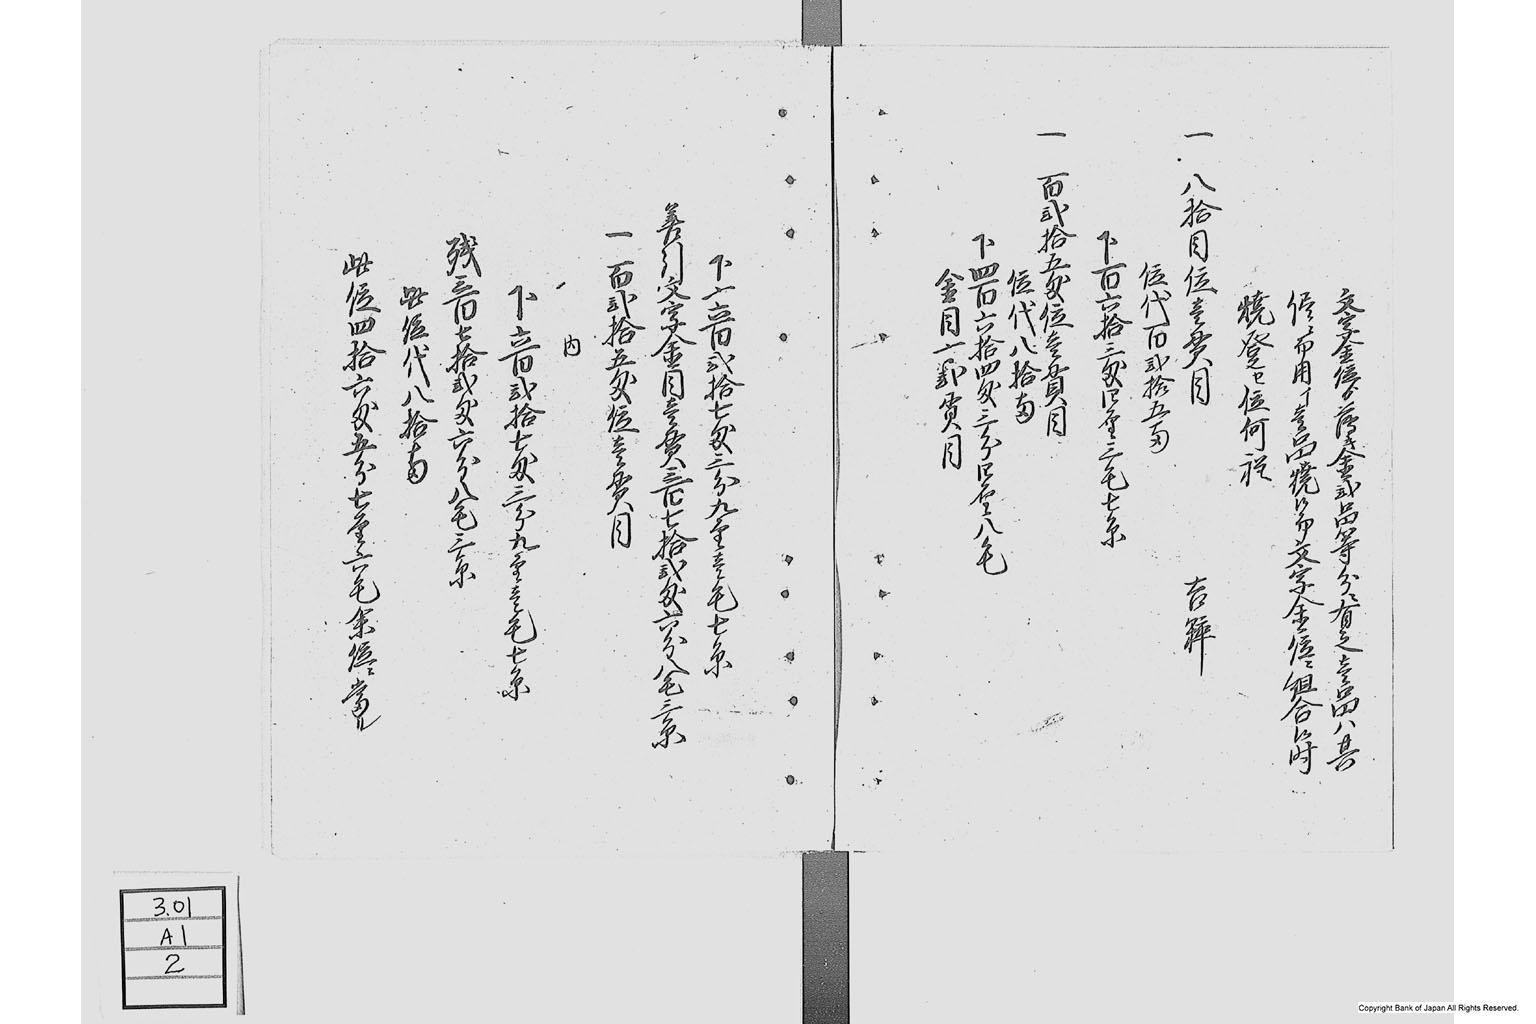 文字金位ゟ薄き金弐品等分ニ有之壱品ハ其
侭ニ而用イ壱品焼候而文字金位ニ組合候時
焼登セ位何程
一 八拾目位壱貫目 吉舞
位代百弐拾五両
下百六拾三匁四厘三毛七糸
一 百弐拾五匁位壱貫目
位代八拾両
下四百六拾四匁三分四厘八毛
金目〆弐貫目
下〆六百弐拾七匁三分九厘壱毛七糸
差引文字金目壱貫三百七拾弐匁六分八毛三糸
一 百弐拾五匁位壱貫目
内
下六百弐拾七匁三分九厘壱毛七糸
残三百七拾弐匁六分八毛三糸
此位代八拾両
此位四拾六匁五分七厘六毛余位ニ當ル
3.01
A1
2
Copyright Bank of Japan All Rights Reserved.